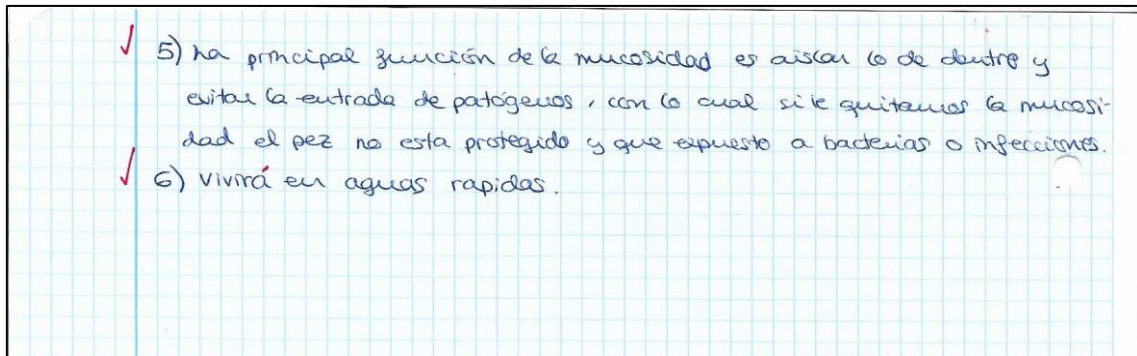 5) La principal función de la mucosidad es aislar lo de dentro y
evitar la entrada de patógenos, con lo cual si le quitamos la mucosi-
dad el pez no esta protegido y que expuesto a bacterias o infecciones.
6) Vivirá en aguas rapidas.